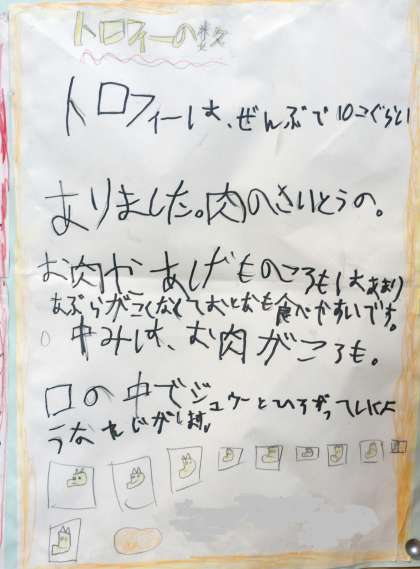 トロフィーの数
トロフィーは、ぜんぶで10こぐらい
ありました。肉のさいとうの。
お肉か、あげものころもはあまり
あぶらがこくなくておとなも食べやすいです。
中みは、お肉がころも。
口の中でジュワーとひろがっていくよ
うなかんじがします。